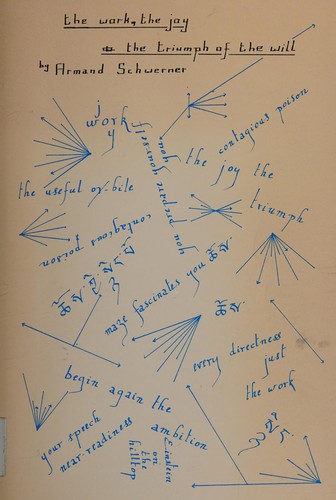 the work, the joy
& the triumph of the will
by Armand Schwerner
work
joy
you prepare yourself
contagious poison
the joy the
triumph
the useful ox-bile
contagious poison
maze fascinates you
every directness
just
the work
begin again the
ambition
your speech
near-readiness
Einstein
on
the
hilltop